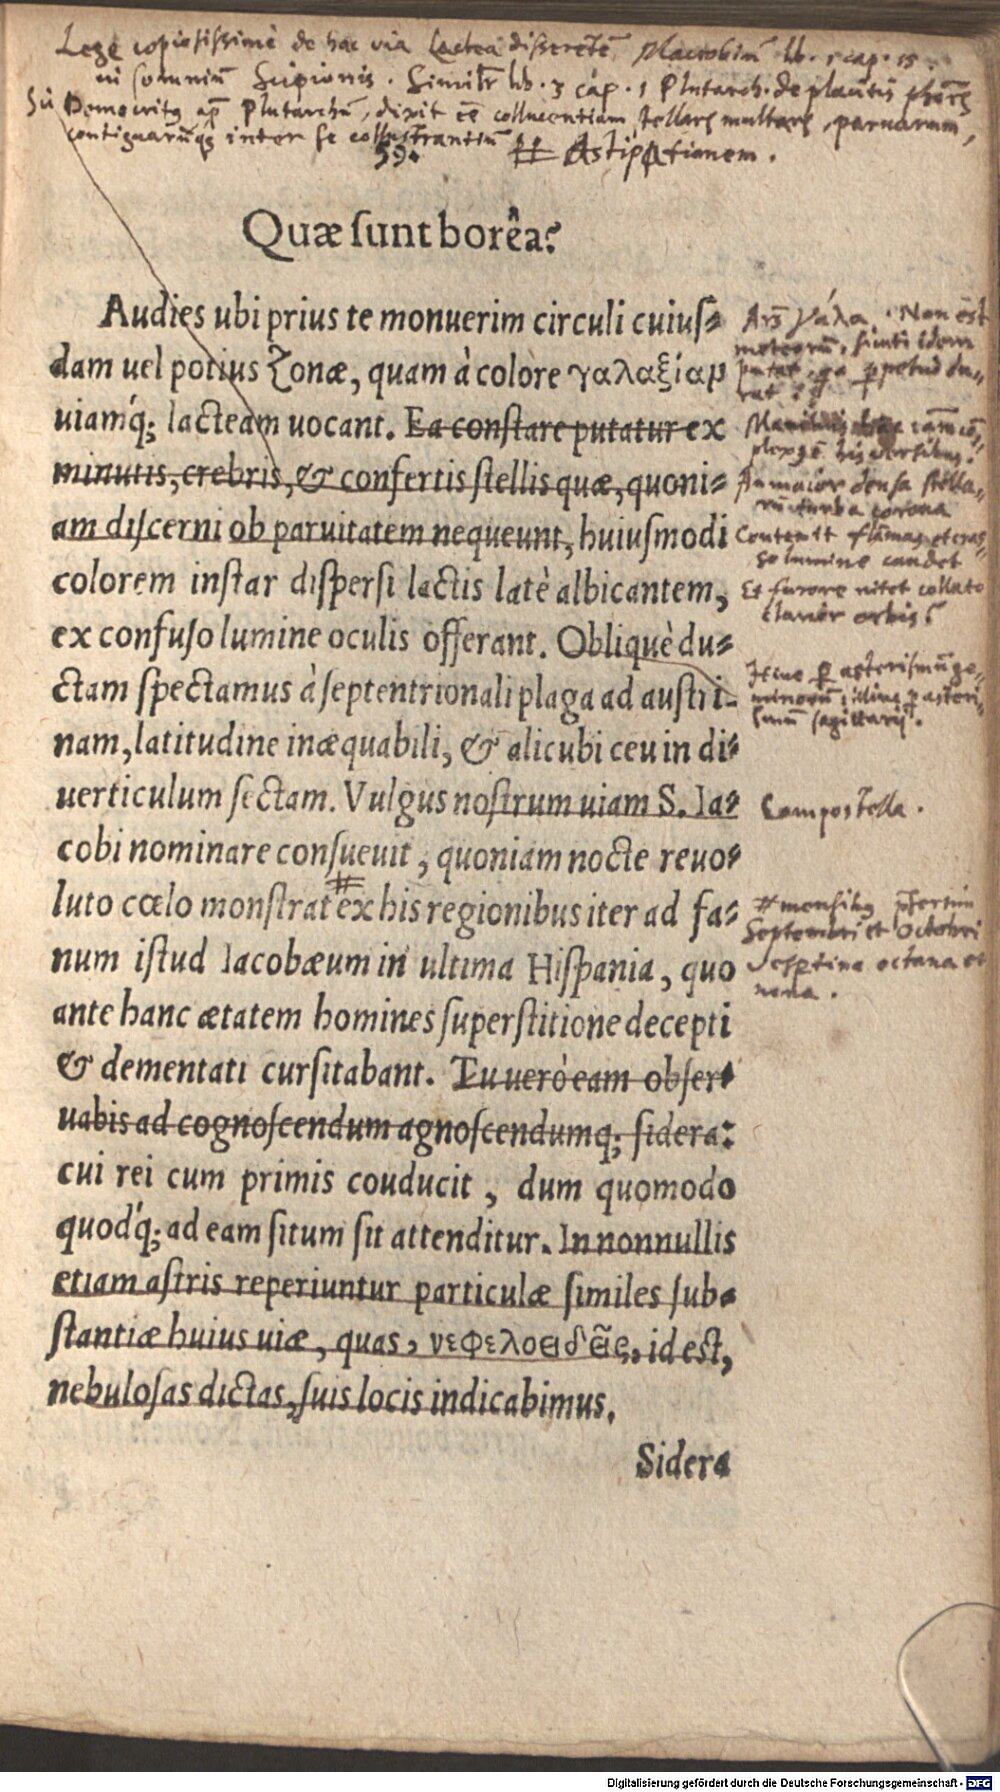 Lege copiosissimè de hac via Lactea disserentē Macrobiū lib. 1 cap. 15.
in somnium Scipionis. Similr̄ lib. 3 cap. 1 Plutarch. de placitis
Democritꝰ ap̄ Plutarchū, dixit eē collucentiam stellarū multarū, parvarum,
contiguarūqꝫ inter se collustrantiū
594 Astipationem.
Quæ ſunt borêa?
Audies ubi prius te monuerim circuli cuiuſ⸗
dam uel potius Zonæ, quam à colore γαλαξίαμ
uiamq́; lacteam uocant. Ea conſtare putatur ex
minutis, crebris, & confertis ſtellis quæ, quoni⸗
am diſcerni ob paruitatem nequeunt, huiuſmodi
colorem inſtar diſperſi lactis latè albicantem,
ex confuſo lumine oculis offerant. Obliquè du⸗
ctam ſpectamus à ſeptentrionali plaga ad auſtri⸗
nam, latitudine inæquabili, & alicubi ceu in di⸗
uerticulum ſectam. Vulgus noſtrum uiam S. Ia⸗
cobi nominare conſueuit, quoniam nocte reuo⸗
luto cœlo monſtrat ex his regionibus iter ad fa⸗
num iſtud Iacobæum in ultima Hiſpania, quo
ante hanc ætatem homines ſuperſtitione decepti
& dementati curſitabant. Tu uerò eam obſer⸗
uabis ad cognoſcendum agnoſcendumq́; ſidera:
cui rei cum primis couducit, dum quomodo
quodq́; ad eam ſitum ſit attenditur. In nonnullis
etiam aſtris reperiuntur particulæ ſimiles ſub⸗
ſtantiæ huius uiæ, quas, νεφελοειδεῖς, id eſt,
nebuloſas dictas, ſuis locis indicabimus.
Sidera
γάλα. Non est
meteorū, sicuti idem
putat, perpetuo du⸗
rat
versibus.
An maior densa stella⸗
rū turba corona
Contexit flāmas et cras⸗
so lumine candet
Et fulgore nitet collato
clarior orbis?
asterismū ge⸗
minorū, illinc asteri⸗
smū sagittarij.
Compostella.
# mensibꝰ
Septembri et Octobri
Vespertina octava et
nona.
Digitalisierung gefördert durch die Deutsche Forschungsgemeinschaft - DFG